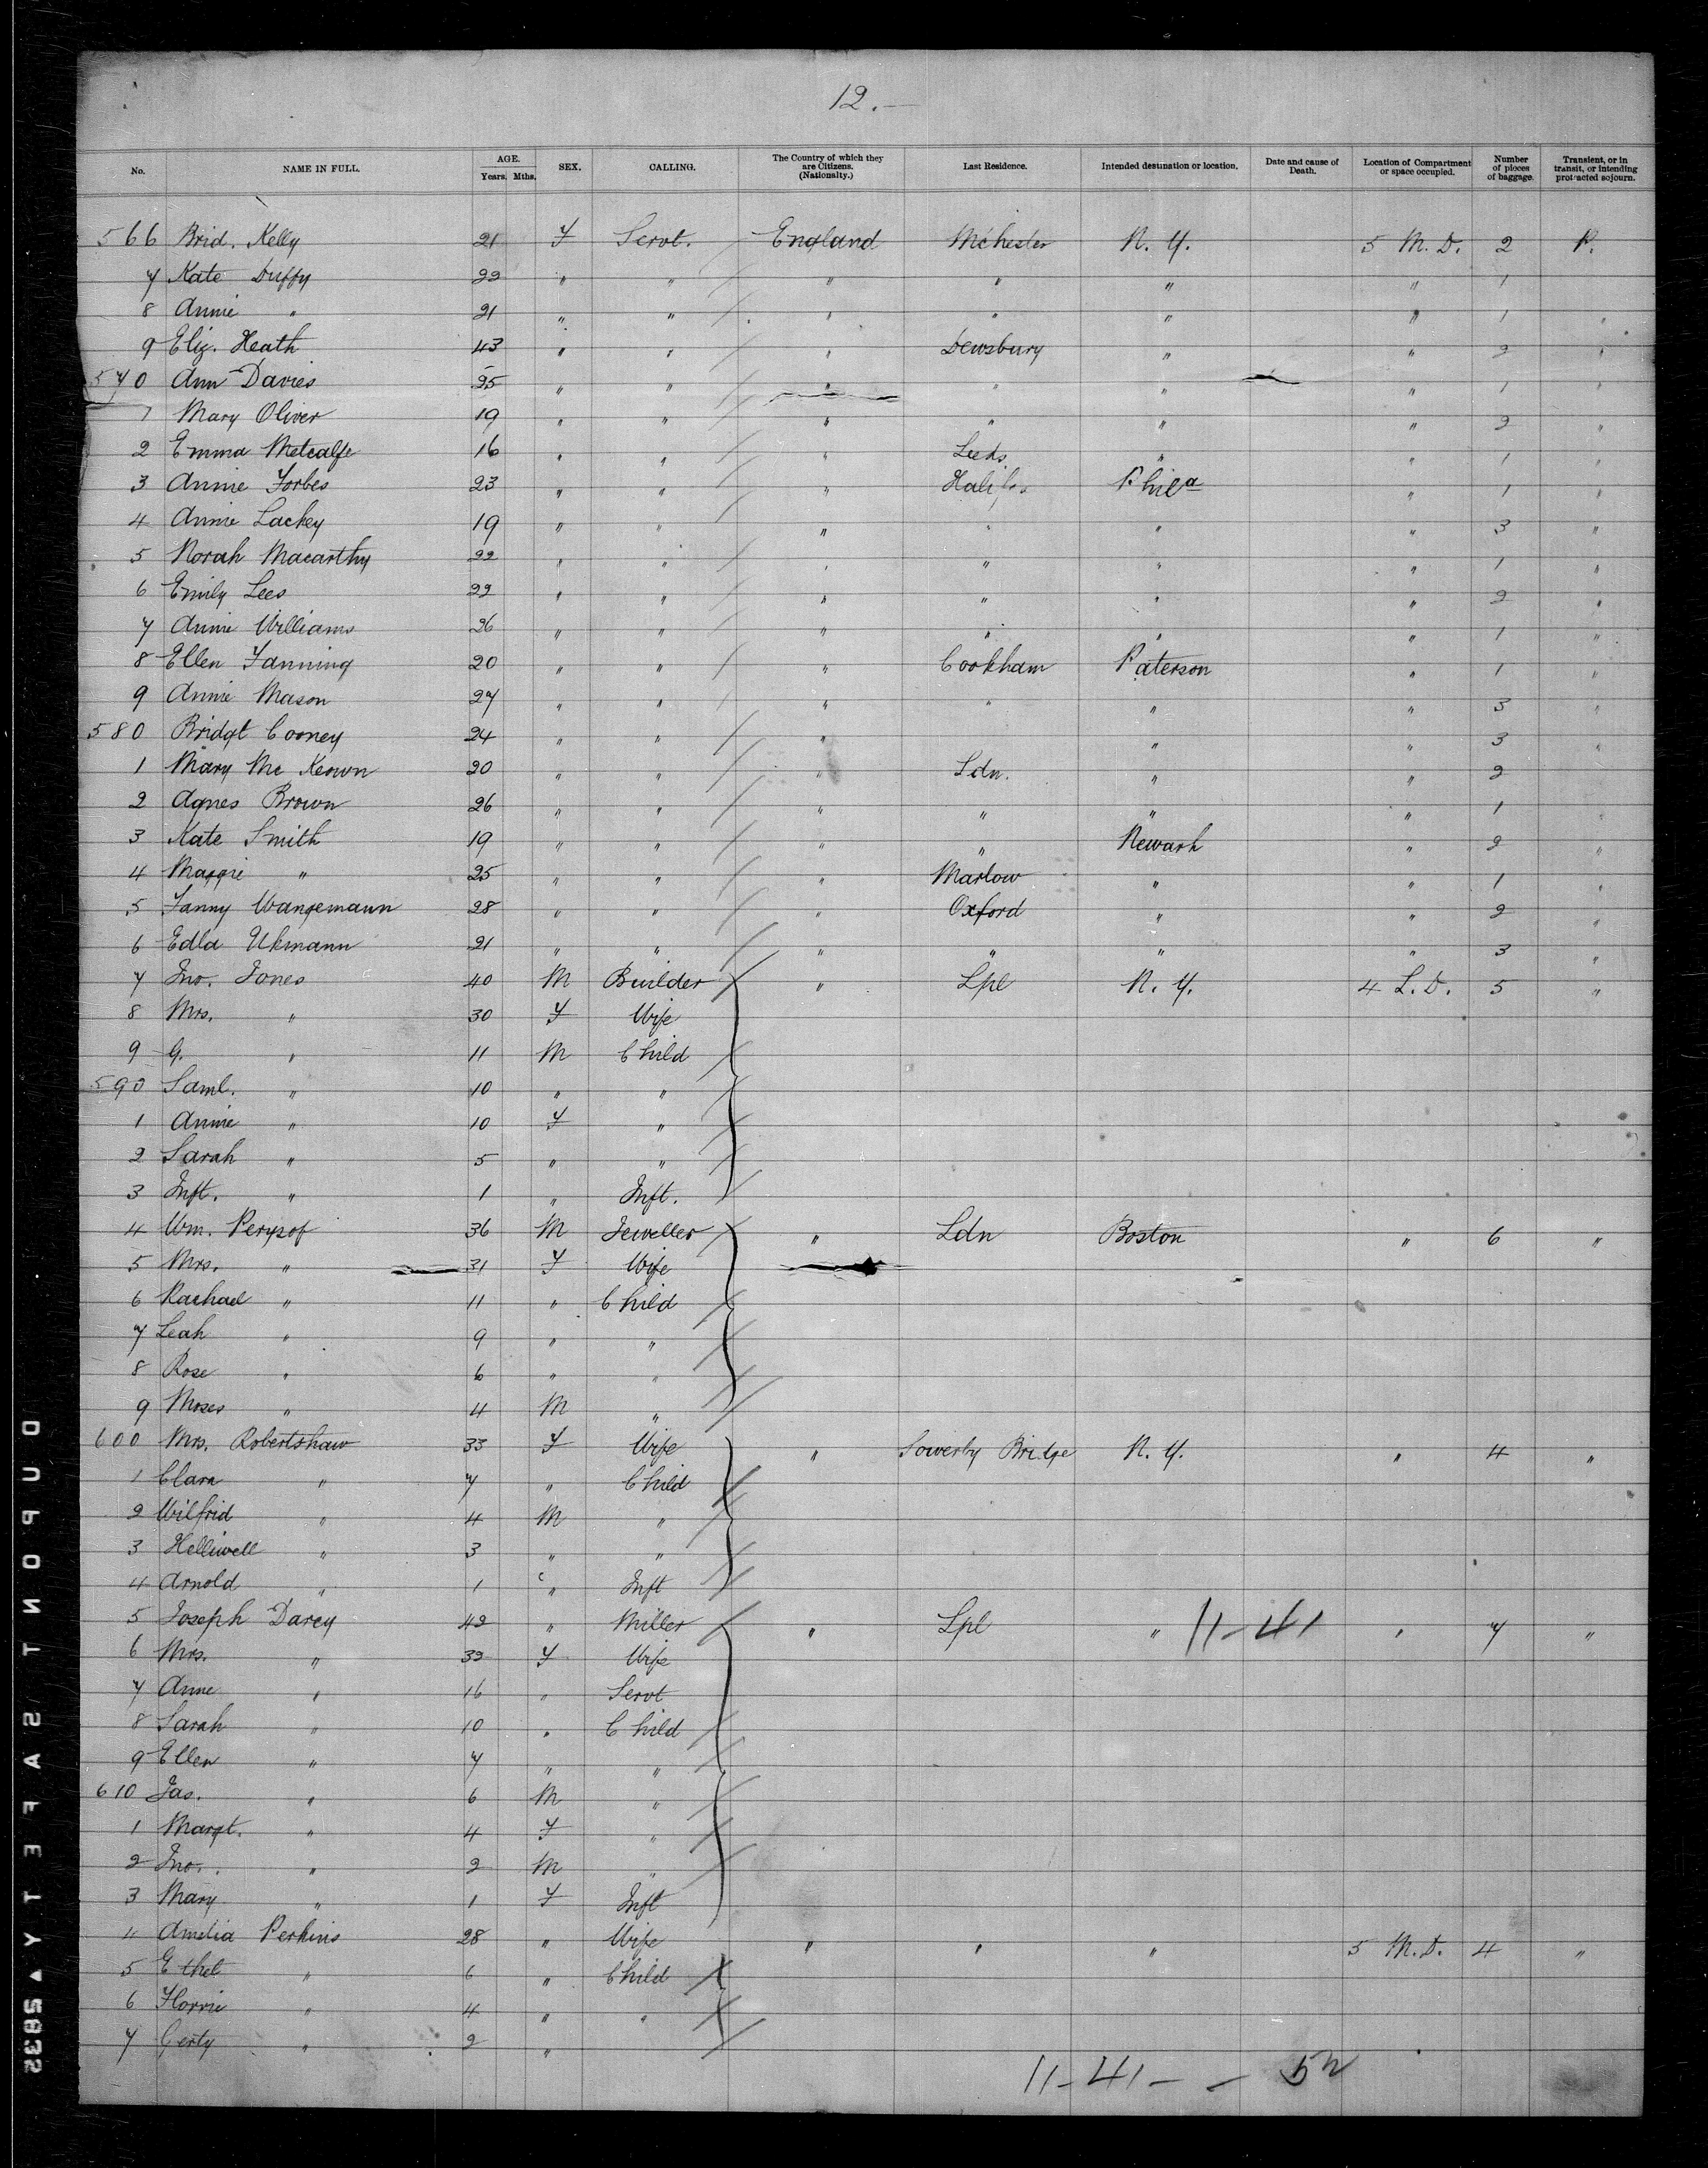 12.—
No. NAME IN FULL. AGE. Years. Mths. SEX. CALLING. The Country of which they are Citizens. (Nationalty.) Last Residence. Intended destination or location. Date and cause of Death. Location of Compartment or space occupied. Number of pieces of baggage. Transient, or in transit, or intending protracted sojourn.
566 Brid. Kelly 21 F Servt. England Mchester N. Y. 5 M. D. 2 P.
7 Kate Duffy 22 " " " " " " 1
8 Annie " 21 " " " " " " 1 "
9 Eliz. Heath 43 " " " Dewsbury " " 2 "
570 Ann Davies 25 " " " " " " 1 "
1 Mary Oliver 19 " " " " " " 2 "
2 Emma Metcalfe 16 " " " Leeds " " 1 "
3 Annie Forbes 23 " " " Halifax Phila " 1 "
4 Annie Lackey 19 " " " " " " 3 "
5 Norah Macarthy 22 " " " " " " 1 "
6 Emily Lees 22 " " " " " " 2 "
7 Annie Williams 26 " " " " " " 1 "
8 Ellen Fanning 20 " " " Cookham Paterson " 1 "
9 Annie Mason 27 " " " " " " 3 "
580 Bridgt Cooney 24 " " " " " 3 "
1 Mary Mc Keown 20 " " " Ldn. " " 2 "
2 Agnes Brown 26 " " " " " " 1 "
3 Kate Smith 19 " " " " Newark " 2 "
4 Maggie " 25 " " " Marlow " " 1 "
5 Fanny Wangemann 28 " " " Oxford " " 2 "
6 Edla Ukmann 21 " " " " " " 3 "
7 Jno. Jones 40 M Builder " Lpl N. Y. 4 L. D. 5 "
8 Mrs. " 30 F Wife
9 G. " 11 M Child
590 Saml. " 10 " "
1 Annie " 10 F "
2 Sarah " 5 " "
3 Inft. " 1 " Inft.
4 Wm. Perysof 36 M Jeweller " Ldn Boston " 6 "
5 Mrs. " 31 F Wife
6 Rachael " 11 " Child
7 Leah " 9 " "
8 Rose " 6 " "
9 Moses " 4 M "
600 Mrs. Robertshaw 33 F Wife " Sowerby Bridge N. Y. " 4 "
1 Clara " 7 " Child
2 Wilfrid " 4 M "
3 Helliwell " 3 " "
4 Arnold " 1 " Inft
5 Joseph Darcy 42 " Miller " Lpl " 11-41 " 7 "
6 Mrs. " 39 F Wife
7 Anne " 16 " Servt
8 Sarah " 10 " Child
9 Ellen " 7 " "
610 Jas. " 6 M "
1 Margt. " 4 F "
2 Jno. " 2 M "
3 Mary " 1 F Inft
4 Amelia Perkins 28 " Wife " " " 5 M. D. 4 "
5 Ethel " 6 " Child
6 Florrie " 4 " "
7 Gerty " 2 "
11-41 - - 52
DUPONT SAFETY ▲ 5832